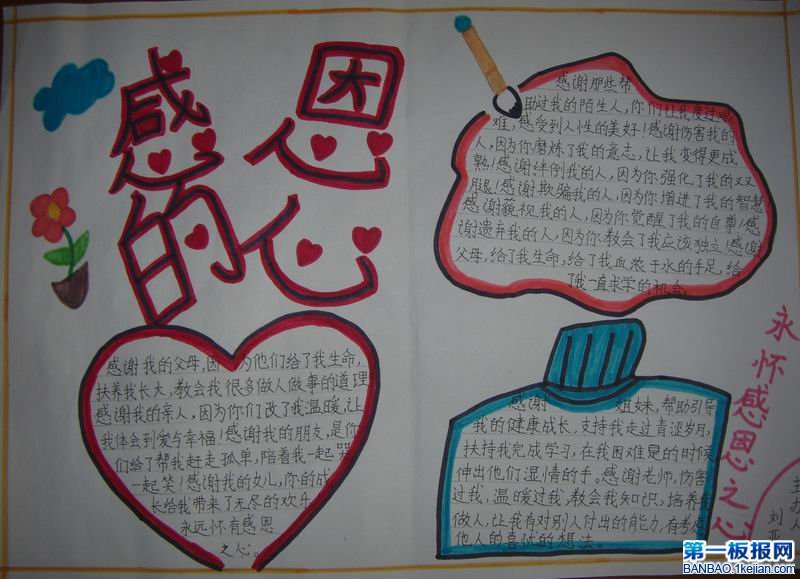 感恩
的心
感谢那些帮
助过我的陌生人,你们让我度过难
难,感受到人性的美好!感谢伤害我的
人,因为你磨炼了我的意志,让我变得更成
熟!感谢绊倒我的人,因为你强化了我的双
腿!感谢欺骗我的人,因为你增进了我的智慧
感谢藐视我的人,因为你觉醒了我的自尊!感
谢遗弃我的人,因为你教会了我应该独立!感谢
父母,给了我生命,给了我血浓于水的手足,给
了我一直求学的机会。
感谢我的父母,因为他们给了我生命,
扶养我长大,教会我很多做人做事的道理
感谢我的亲人,因为你们改了我温暖,让
我体会到爱与幸福!感谢我的朋友,是你
们给了帮我赶走孤单,陪着我一起哭
一起笑!感谢我的女儿,你的成
长给我带来了无尽的欢乐
永远怀有感恩
之心。
感谢 姐妹,帮助引导
我的健康成长,支持我走过青涩岁月,
扶持我完成学习,在我困难是的时候
伸出他们湿情的手。感谢老师,伤害
过我,温暖过我,教会我知识,培养我
做人,让我有对别人付出的能力,有考虑
他人的喜忧的想法。
永怀感恩之心
主办人
刘亚
第一板报网
BANBAO.1kejian.com